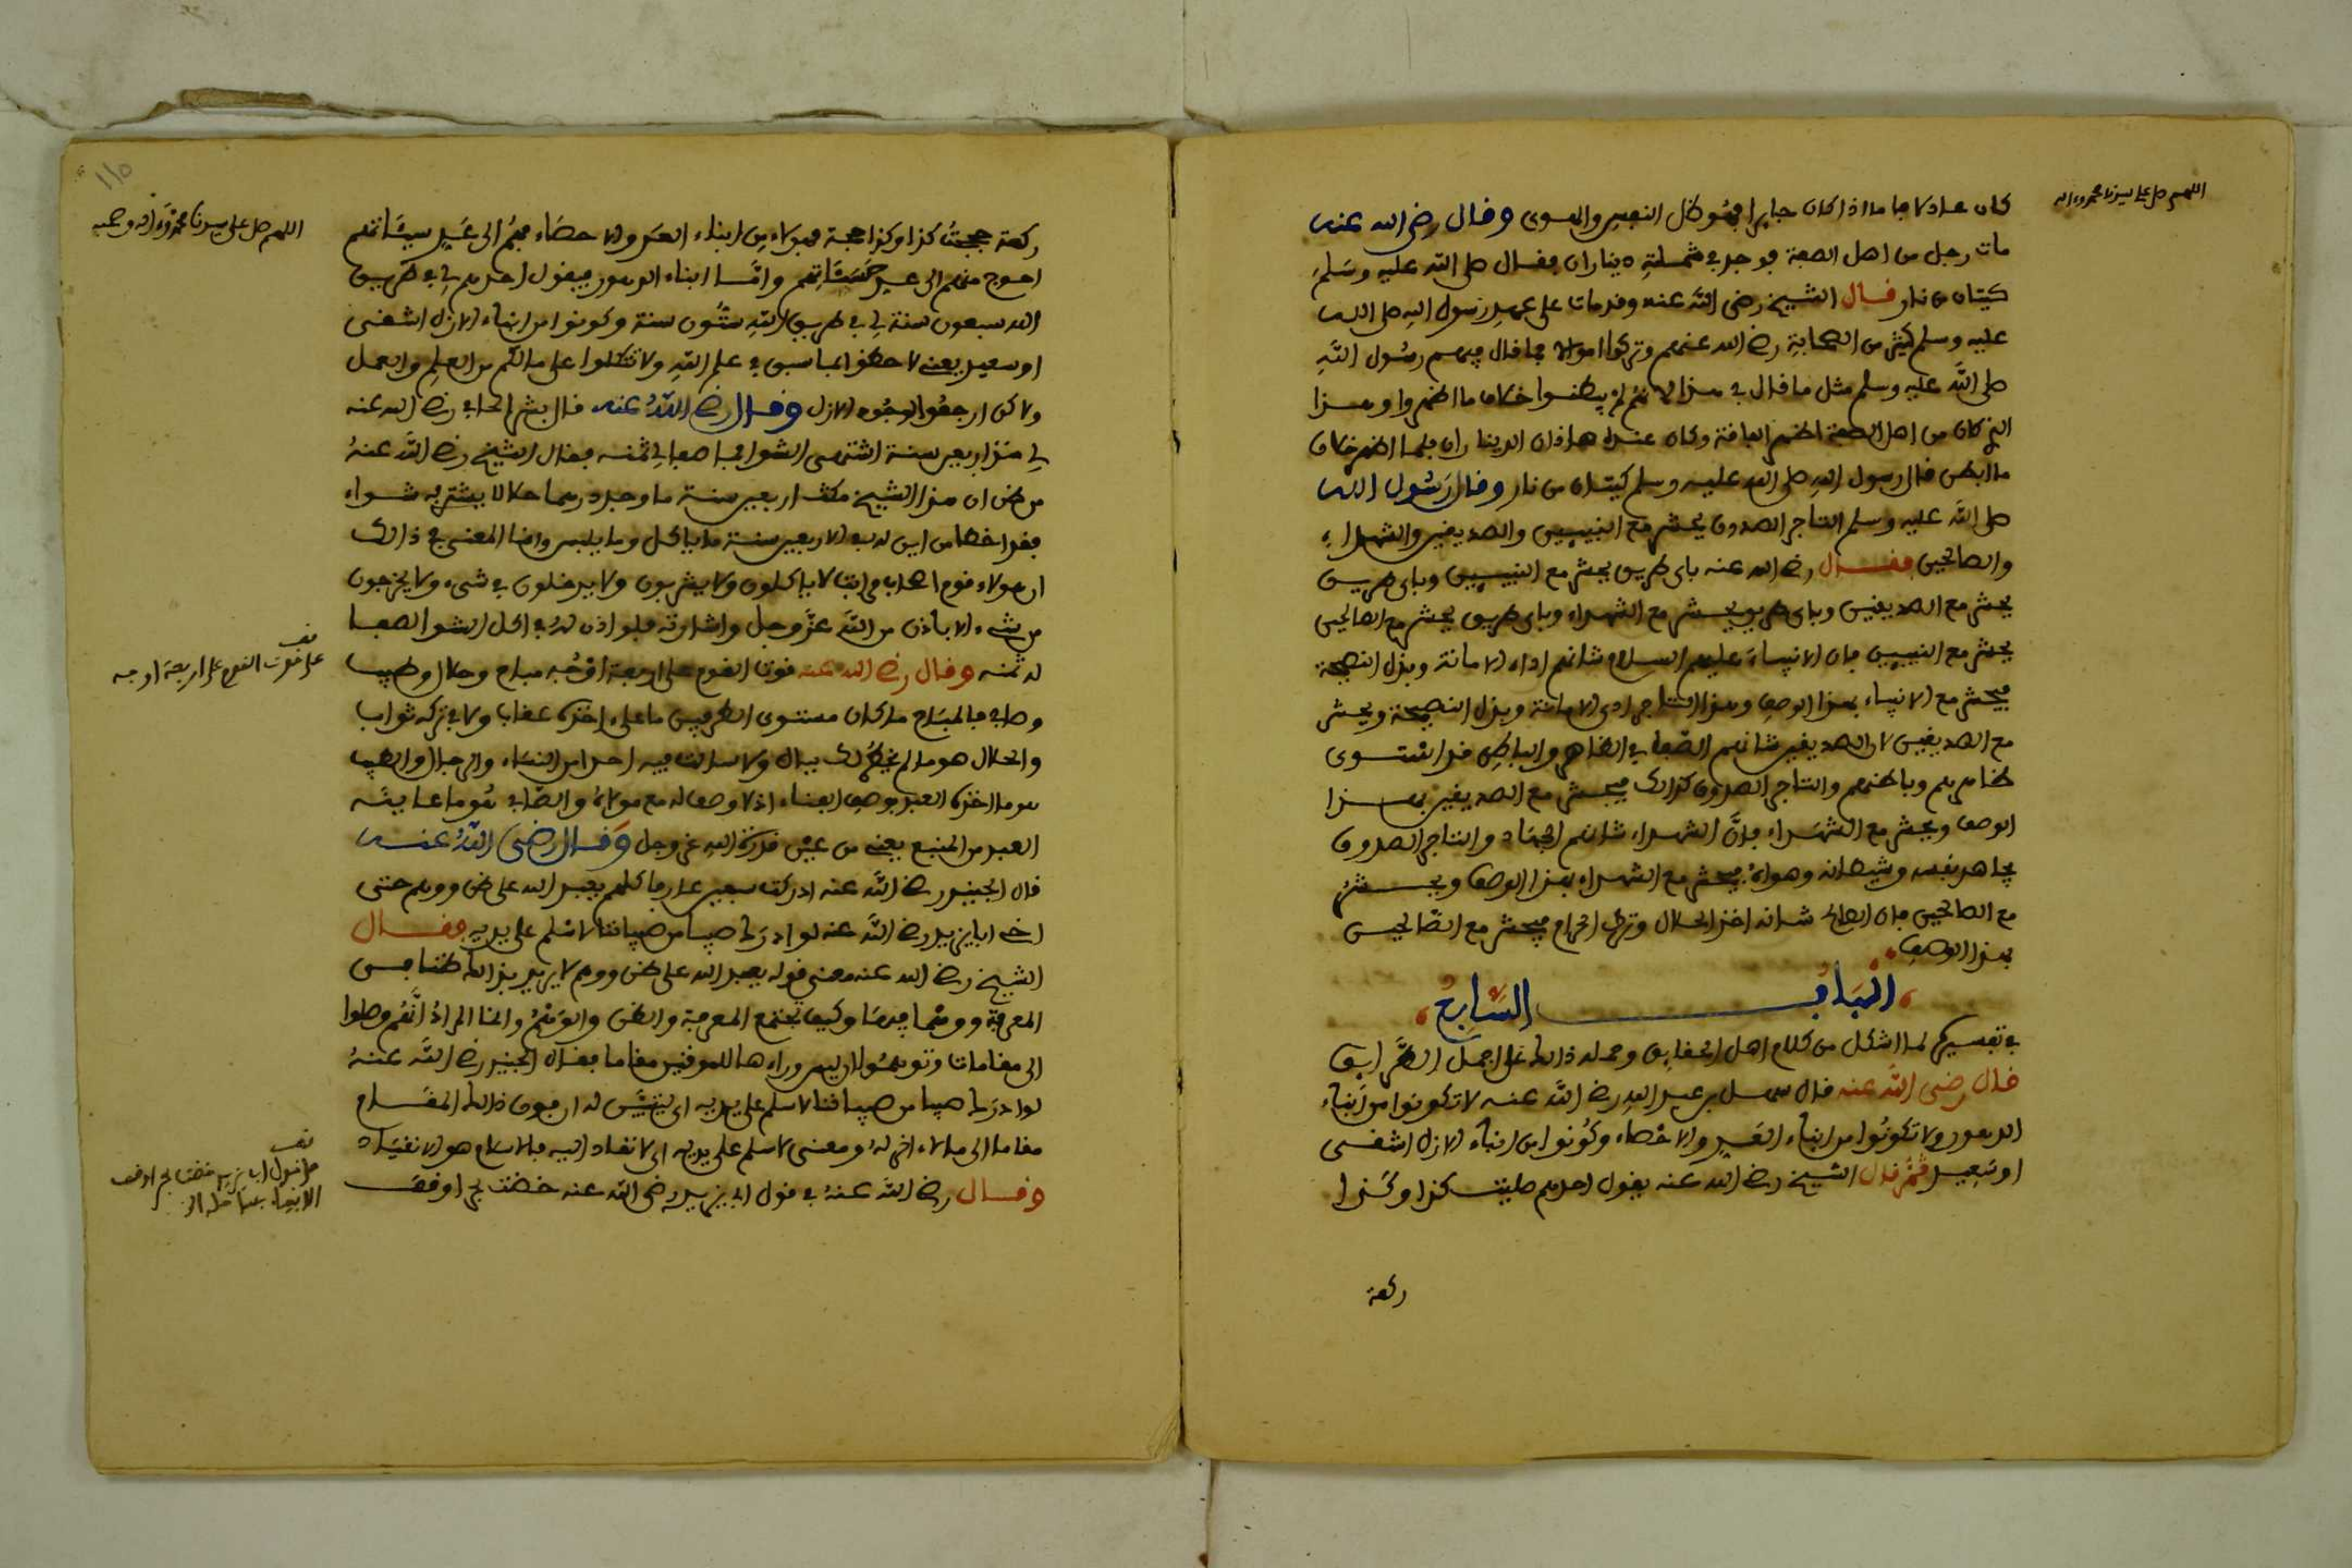 اللهم صل على سيدنا محمد وءاله
كان عادلا واما اذا كان جايرا فهو ظل النفس والهوى وقال رضي الله عنه
مات رجل من اهل الصفة فوجد في شملته ديناران فقال صلى الله عليه وسلم
كيتان من نار قال الشيخ رضي الله عنه وقد مات على عهد رسول الله صلى الله
عليه وسلم كثير من الصحابة رضي الله عنهم وتركوا اموالا فما قال فيهم رسول الله
صلى الله عليه وسلم مثل ما قال في هذا لانهم لم يبطنوا خلاف ما اظهروا وهذا
الذي كان من اهل الصفة اظهر الفاقة وكان عنده هاذان الديناران فلما اظهر خلاف
ما ابطن قال رسول الله صلى الله عليه وسلم كيتان من نار وقال رسول الله
صلى الله عليه وسلم التاجر الصدوق يحشر مع النبيين والصديقين والشهداء
والصالحين فقال رضي الله عنه باي طريق يحشر مع النبيين وباي طريق
يحشر مع الصديقين وباي طريق يحشر مع الشهداء وباي طريق يحشر مع الصالحين
يحشر مع النبيين فان الانبياء عليهم السلام شانهم اداء الامانة وبذل النصيحة
فيحشر مع الانبياء بهذا الوصف وهذا التاجر ادى الامانة وبذل النصيحة ويحشر
مع الصديقين لان الصديقين شانهم الصفا في الظاهر والباطن قد استوى
ظاهرهم وباطنهم والتاجر الصدوق كذالك فيحشر مع الصديقين بهذا
الوصف ويحشر مع الشهداء فان الشهداء شانهم الجهاد والتاجر الصدوق
يجاهد نفسه وشيطانه وهواه فيحشر مع الشهداء بهذا الوصف ويحشر
مع الصالحين فان الصالح شانه اخذ الحلال وترك الحرام فيحشر مع الصالحين
بهذا الوصف
الباب السابع
في تفسيركم لما اشكل من كلام اهل الحقايق وحمله ذالك على اجمل الطرايق
قال رضي الله عنه قال سهل بن عبد الله رضي الله عنه لا تكونوا من ابناء
الدهور ولا تكونوا من ابناء العدد والاحصاء وكونوا من ابناء الازل اشقى
او سعيد ثم قال الشيخ رضي الله عنه يقول احدهم صليت كذا وكذا
ركعة
١١٥
اللهم صل على سيدنا محمد وءاله وصحبه
ركعة حججت كذا وكذا حجة فهولاء من ابناء العدد والاحصاء فهم الى عد سيئاتهم
احوج منهم الى عد حسناتهم واما ابناء الدهور فيقول احدهم لي في طريق
الله سبعون سنة لي في طريق الله ستون سنة وكونوا من ابناء الازل اشقى
او سعيد يعني لاحظوا ما سبق في علم الله ولا تتكلوا على مالكم من العلم والعمل
ولاكن ارجعوا لوجود الازل وقال رضي الله عنه قال بشر الحافي رضي الله عنه
لي منذ اربعين سنة اشتهي الشوا فما صفا لي ثمنه فقال الشيخ رضي الله عنه
من ظن ان هذا الشيخ مكث اربعين سنة ما وجد درهما حلالا يشتري به شواء
فقد اخطا من اين له في الاربعين سنة ما ياكل وما يلبس وانما المعنى في ذالك
ان هولاء قوم اصحاب مراتب لا ياكلون ولا يشربون ولا يدخلون في شيء ولا يخرجون
من شيء الا باذن من الله عز وجل واشارته فلو اذن له في اكل الشوا لصفا
له ثمنه وقال رضي الله عنه قوت القوم على اربعة اوجه مباح وحلال وطيب
وصاف فالمباح ما كان مستوى الطرفين ما على اخذه عقاب ولا في تركه ثواب
والحلال هو ما لم يخطر لك ببال ولا سالت فيه احدا من النساء والرجال والطيب
هو ما اخذه العبد بوصف الفناء اذ لا وصف له مع مولاه والصافي هو ما عاينه
العبد من المنبع يعني من عين قدرة الله عز وجل وقال رضي الله عنه
قال الجنيد رضي الله عنه ادركت سبعين عارفا كلهم يعبد الله على ظن ووهم حتى
اخي ابا يزيد رضي الله عنه لو ادرك صبيا من صبياننا لاسلم على يديه فقال
الشيخ رضي الله عنه معنى قوله يعبد الله على ظن ووهم لا يريد بذالك ظنا في
المعرفة ووهما فيها وكيف يجتمع المعرفة والظن والوهم وانما المراد انهم وصلوا
الى مقامات وتوهموا ان ليس وراءها للموقنين مقاما فقال الجنيد رضي الله عنه
لو ادرك صبيا من صبياننا لاسلم على يديه اي ليتبين له ان فوق ذالك المقام
مقاما الى ما لا ءاخر له ومعنى لاسلم على يديه اي لانقاد اليه فالاسلام هو الانقياد
وقال رضي الله عنه في قول ابي يزيد رضي الله عنه خضت بحرا وقف
قف
على قوت القوم على اربعة اوجه
قف
على قول ابي يزيد خضت بحرا وقف
الانبياء بساحله الخ